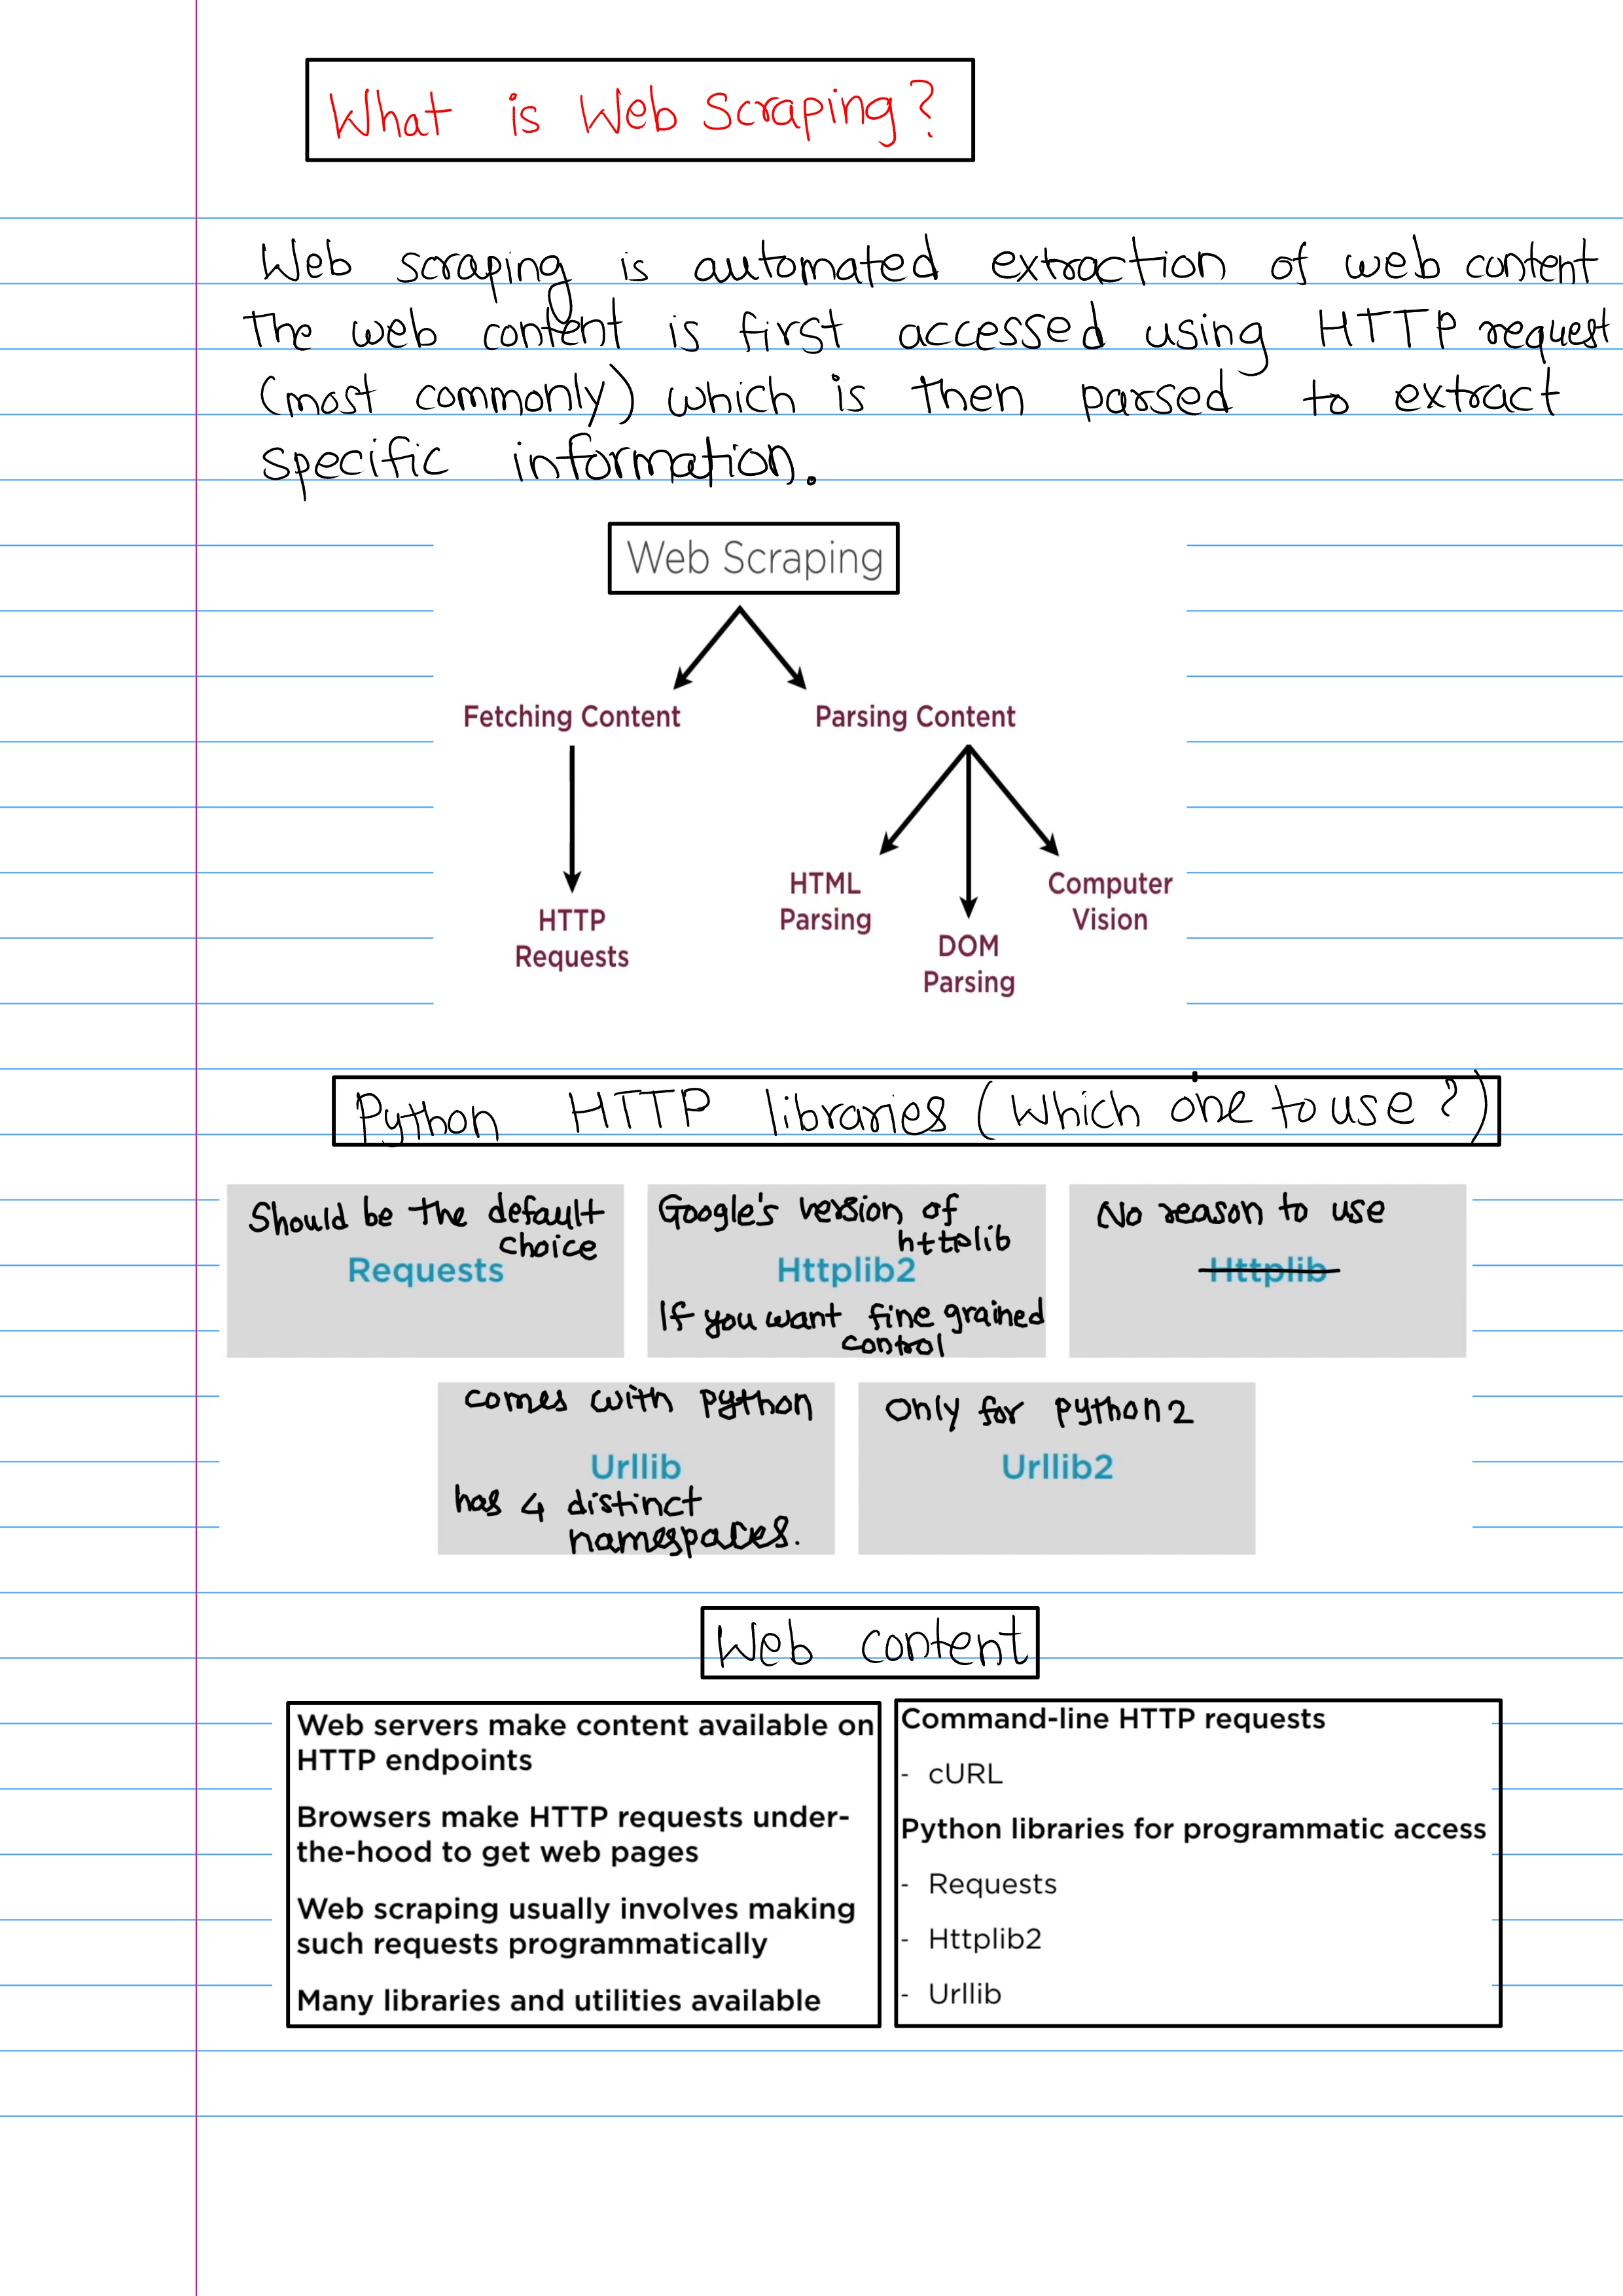 What is Web Scraping?
Web scraping is automated extraction of web content
The web content is first accessed using HTTP request
(most commonly) which is then parsed to extract
specific information.
Web Scraping
Fetching Content
Parsing Content
HTTP
Requests
HTML
Parsing
DOM
Parsing
Computer
Vision
Python HTTP libraries (Which one to use?)
Should be the default
choice
Requests
Google's version of
httplib
Httplib2
If you want fine grained
control
No reason to use
Httplib
comes with python
Urllib
has 4 distinct
namespaces.
Only for python2
Urllib2
Web content
Web servers make content available on
HTTP endpoints
Browsers make HTTP requests under-
the-hood to get web pages
Web scraping usually involves making
such requests programmatically
Many libraries and utilities available
Command-line HTTP requests
- cURL
Python libraries for programmatic access
- Requests
- Httplib2
- Urllib